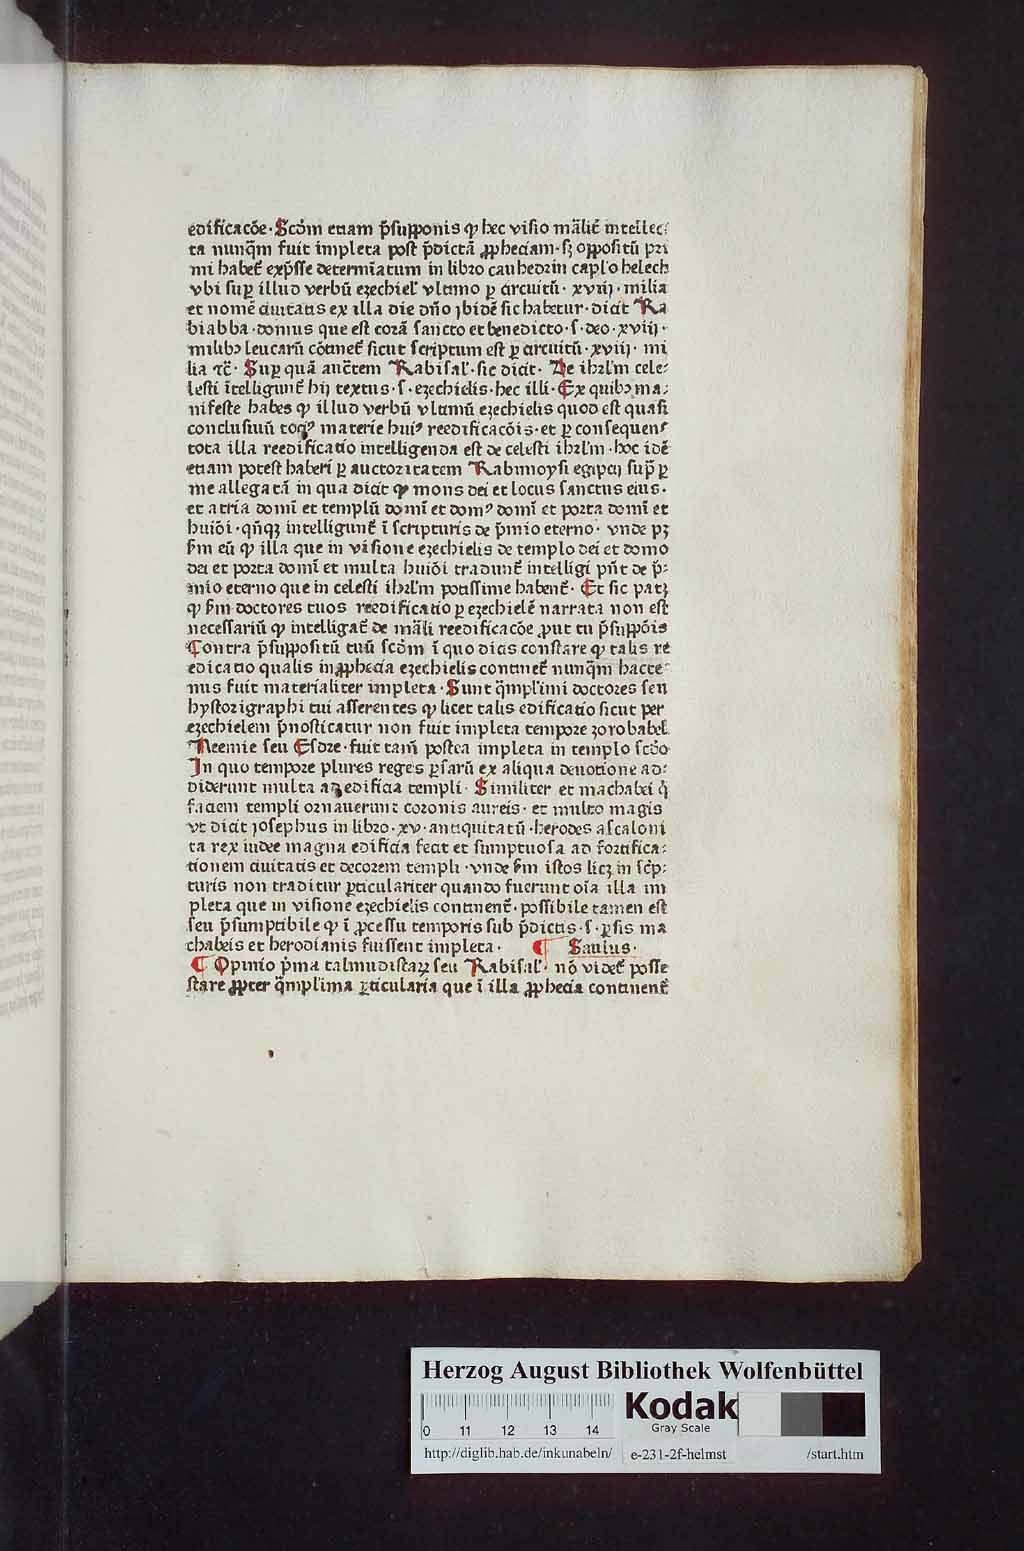 edificacōe · Scōm etiam p̄supponis ꝙ hec visio mālit̄ intellec⸗
ta nunq̄m fuit impleta post p̄dictā ꝓpheciam · sꝫ oppositū pri
mi habet̄ exp̄sse determīatum in libro cauhedrin capl'o helech
vbi suꝑ illud verbū ezechiel' vltimo ꝑ circuitū · xviij · milia
et nomē ciuitatis ex illa die dn̄o jbidē sic habetur · dicit Ra
biabba · domus que est corā sancto et benedicto · s · deo · xviij ·
milibꝰ leucarū cōtinet̄ sicut scriptum est ꝑ circuitū · xviij · mi
lia ⁊c̄ · Suꝑ quā auc̄tem Rabisal' · sic dicit · De ihrl'm cele⸗
lesti ītelligunt̄ hij textus · s · ezechielis · hec illi · Ex quibꝰ ma⸗
nifeste habes ꝙ illud verbū vltimū ezechielis quod est quasi
conclusiuū tociꝰ materie huiꝰ reedificacōis · et ꝑ consequens
tota illa reedificatio intelligenda est de celesti ihrl'm · hoc idē
etiam potest haberi ꝑ auctoritatem Rabimoysi egipcij sup̄ ꝑ
me allegatā in qua dicit ꝙ mons dei et locus sanctus eius ·
et atria domī et templū domī et domꝰ domī et porta domī et
huiōi · qn̄qꝫ intelligunt̄ ī scripturis de p̄mio eterno · vnde pꝫ
ẜm eū ꝙ illa que in visione ezechielis de templo dei et domo
dei et porta domī et multa huiōi tradunt̄ intelligi pn̄t de p̄⸗
mio eterno que in celesti ihrl'm potissime habent̄ · Et sic patꝫ
ꝙ ẜm doctores tuos reedificatio ꝑ ezechielē narrata non est
necessariū ꝙ intelligat̄ de māli reedificacōe ꝓut tu p̄suppōis
Contra p̄suppositū tuū scōm ī quo dicis constare ꝙ talis re
edicatio qualis in ꝓphecia ezechielis continet̄ nunq̄m hacte⸗
nus fuit materialiter impleta · Sunt q̄mpl'imi doctores seu
hystorigraphi tui asserentes ꝙ licet talis edificatio sicut per
ezechielem p̄nosticatur non fuit impleta tempore zorobabel
Neemie seu Esdre · fuit tam̄ postea impleta in templo scd̄o
In quo tempore plures reges ꝑsarū ex aliqua deuotione ad⸗
diderunt multa ad edificia templi · Similiter et machabei q̄
faciem templi ornauerunt coronis aureis · et multo magis
vt dicit josephus in libro · xv · antiquitatū · herodes ascaloni
ta rex iudee magna edificia fecit et sumptuosa ad fortifica⸗
tionem ciuitatis et decorem templi · vnde ẜm istos licꝫ in scp̄⸗
turis non traditur ꝑticulariter quando fuerunt oīa illa im
pleta que in visione ezechielis continent̄ · possibile tamen est
seu p̄sumptibile ꝙ ī ꝓcessu temporis sub p̄dictis · s · ꝑsis ma
chabeis et herodianis fuissent impleta · ¶ Saulus ·
¶ Opinio p̄ma talmudistaꝝ seu Rabisal' · nō videt̄ posse
stare ꝓpter q̄mplima ꝑticularia que ī illa ꝓphecia continent̄
Herzog August Bibliothek Wolfenbüttel
Kodak
Gray Scale
0 11 12 13 14
http://diglib.hab.de/inkunabeln/ e-231-2f-helmst /start.htm